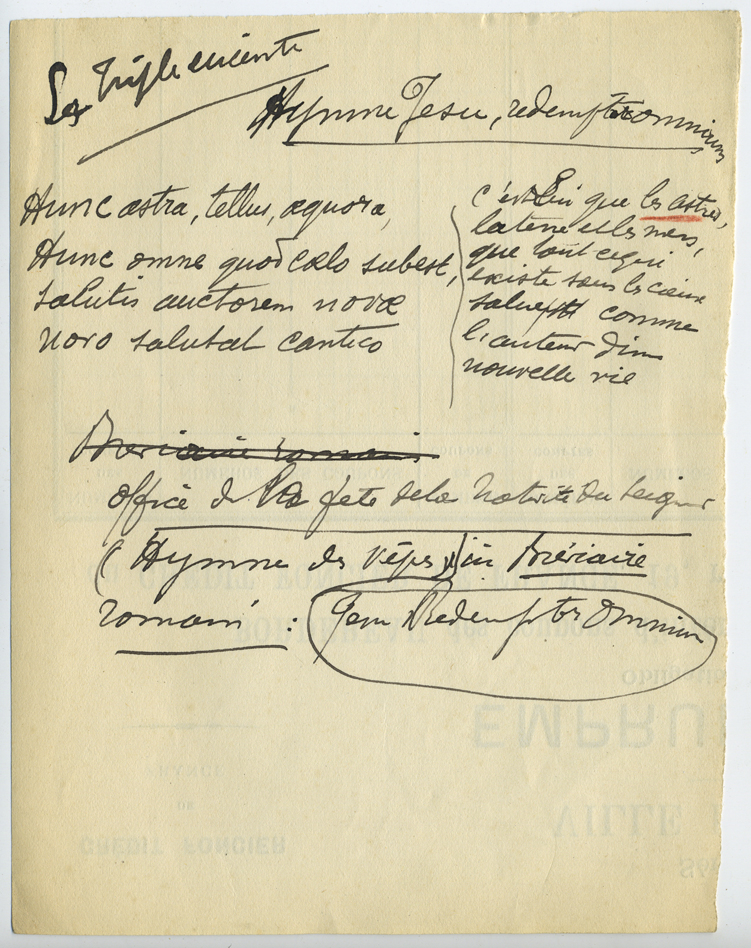 La Triple enceinte
Hymne Jesu, redemptor omnium
Hunc astra, tellus, æquora,
Hunc omne quod cælo subest,
salutis auctorem novæ
novo salutat cantico
c'est lui que les astres,
la terre et les mers,
que tout ce qui
existe sous les cieux
saluent comme
l'auteur d'une
nouvelle vie
Bréviaire romain
office de la fête de la Nativité du Seigneur
(Hymne des Vêpres) in Bréviaire
romain : Jesu Redemptor omnium
EMPRU
VILLE
CREDIT FONCIER
DE